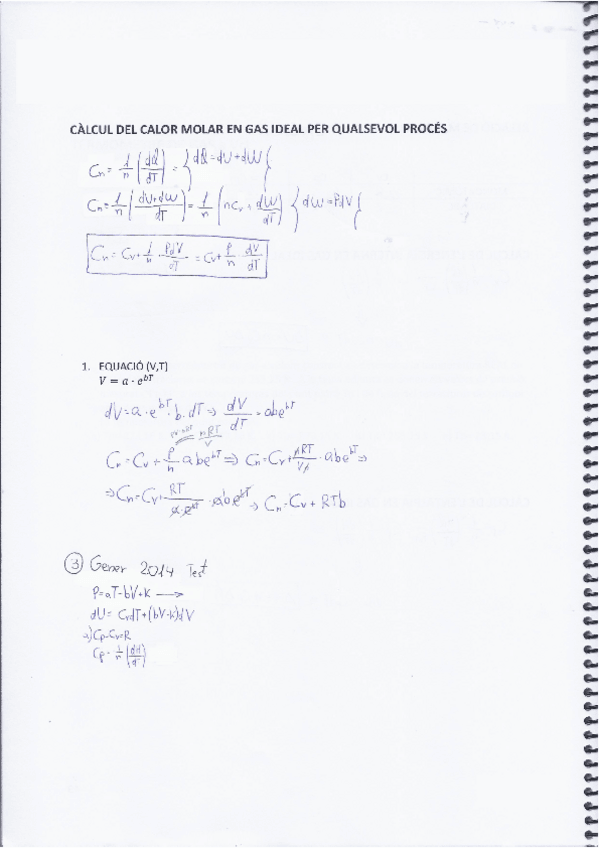 CÀLCUL DEL CALOR MOLAR EN GAS IDEAL PER QUALSEVOL PROCÉS
Cn = 1/n (dQ/dT) = } dQ = dU + dW {
Cn = 1/n (dU+dW/dT) = 1/n (nCv + dW/dT) } dW = PdV {
Cn = Cv + 1/n · PdV/dT = Cv + P/n · dV/dT
1. EQUACIÓ (V,T)
V = a · e^bT
dV = a · e^bT · b · dT ⇒ dV/dT = abe^bT
PV=nRT nRT/V
Cn = Cv + P/n abe^bT ⇒ Cn = Cv + nRT/Vn · abe^bT ⇒
⇒ Cn = Cv + RT/a·e^bT · abe^bT ⇒ Cn = Cv + RTb
③ Gener 2014 Test
P = aT - bV + K →
dU = CvdT + (bV-k)dV
⇒) Cp - Cv = R
Cp = 1/n (dH/dT)